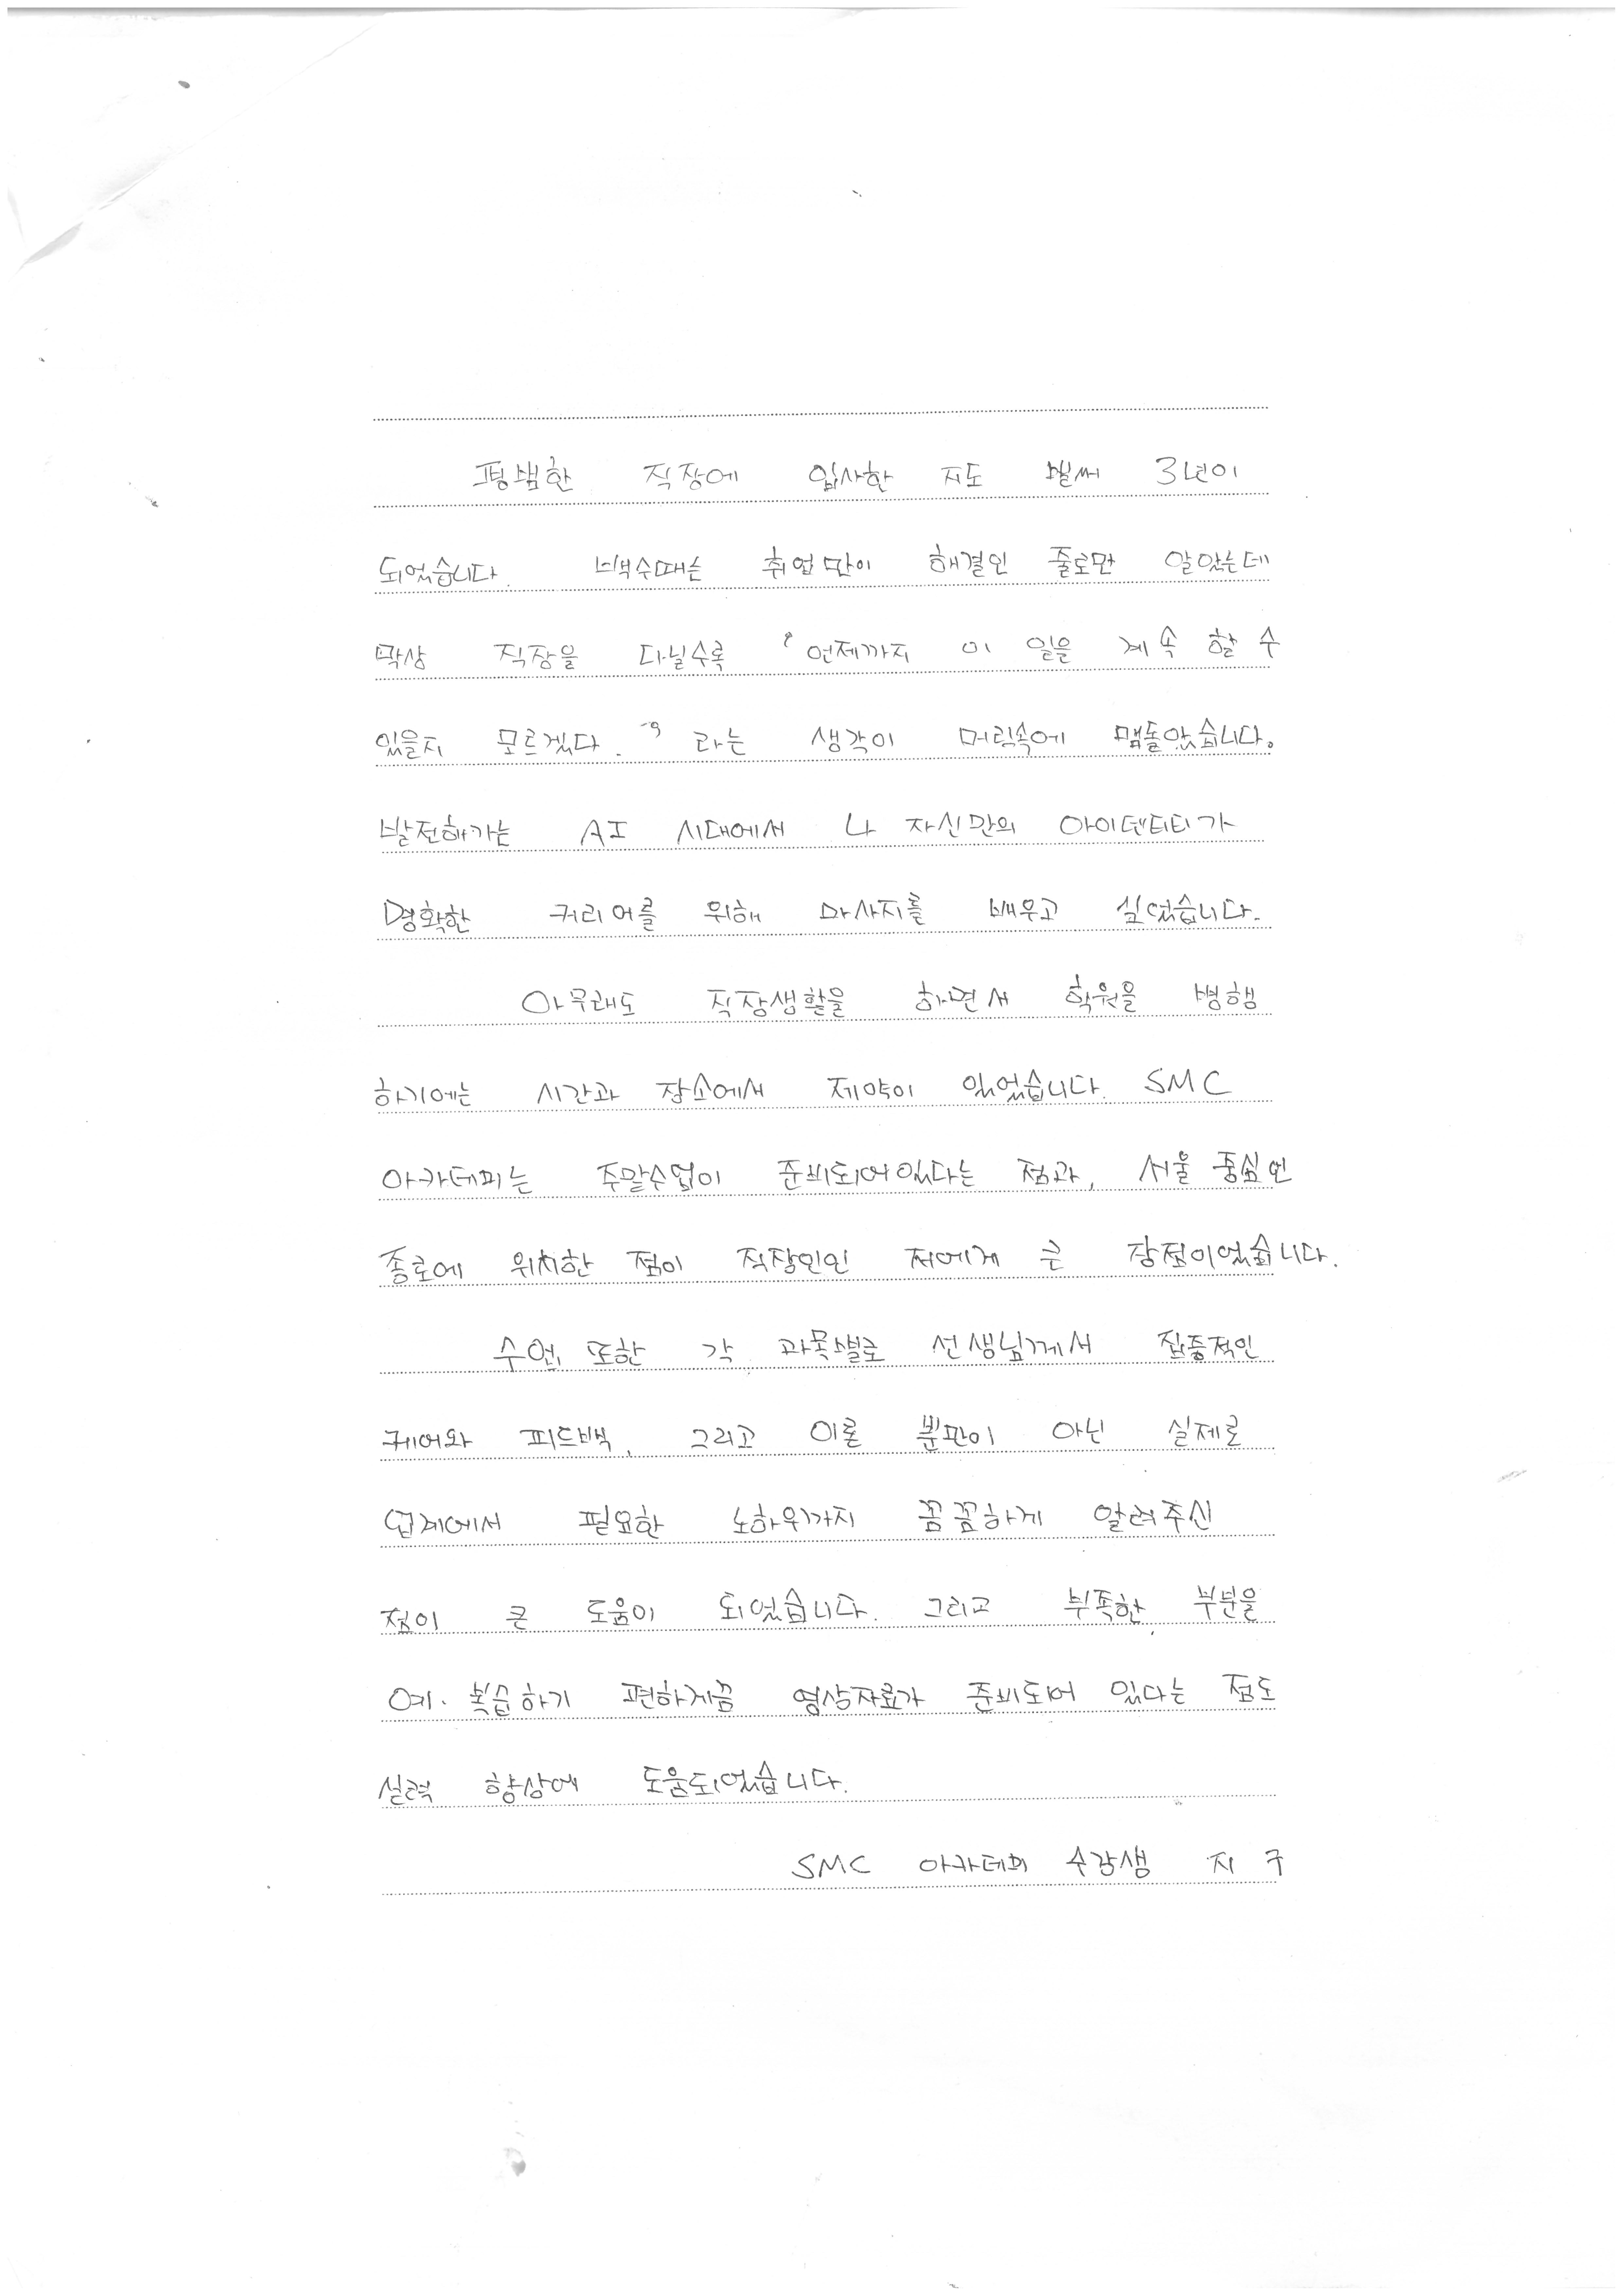 평범한 직장에 입사한 지도 벌써 3년이
되었습니다. 백수때는 취업만이 해결인 줄로만 알았는데
막상 직장을 다닐수록 "언제까지 이 일을 계속 할 수
있을지 모르겠다." 라는 생각이 머릿속에 맴돌았습니다.
발전해가는 AI 시대에서 나 자신만의 아이덴티티가
명확한 커리어를 위해 마사지를 배우고 싶었습니다.
아무래도 직장생활을 하면서 학원을 병행
하기에는 시간과 장소에서 제약이 있었습니다. SMC
아카데미는 주말수업이 준비되어있다는 점과, 서울 중심인
종로에 위치한 점이 직장인인 저에게 큰 장점이었습니다.
수업 또한 각 과목별로 선생님께서 집중적인
케어와 피드백, 그리고 이론 뿐만이 아닌 실제로
업계에서 필요한 노하우까지 꼼꼼하게 알려주신
점이 큰 도움이 되었습니다. 그리고 부족한 부분을
예·복습하기 편하게끔 영상자료가 준비되어 있다는 점도
실력 향상에 도움되었습니다.
SMC 아카데미 수강생 지 구